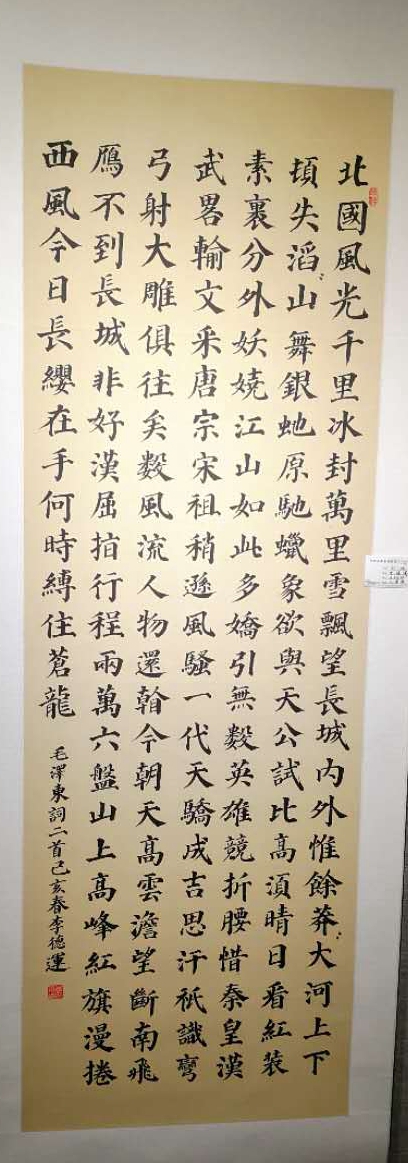 北國風光千里冰封萬里雪飄望長城内外惟餘莽〻大河上下
頓失滔〻山舞銀虵原馳蠟象欲與天公試比高須晴日看紅裝
素裹分外妖嬈江山如此多嬌引無數英雄競折腰惜秦皇漢
武畧輸文采唐宗宋祖稍遜風騷一代天驕成吉思汗祇識彎
弓射大雕俱往矣數風流人物還看今朝天高雲澹望斷南飛
鴈不到長城非好漢屈指行程兩萬六盤山上高峰紅旗漫捲
西風今日長纓在手何時縛住蒼龍
毛澤東詞二首己亥春李德運